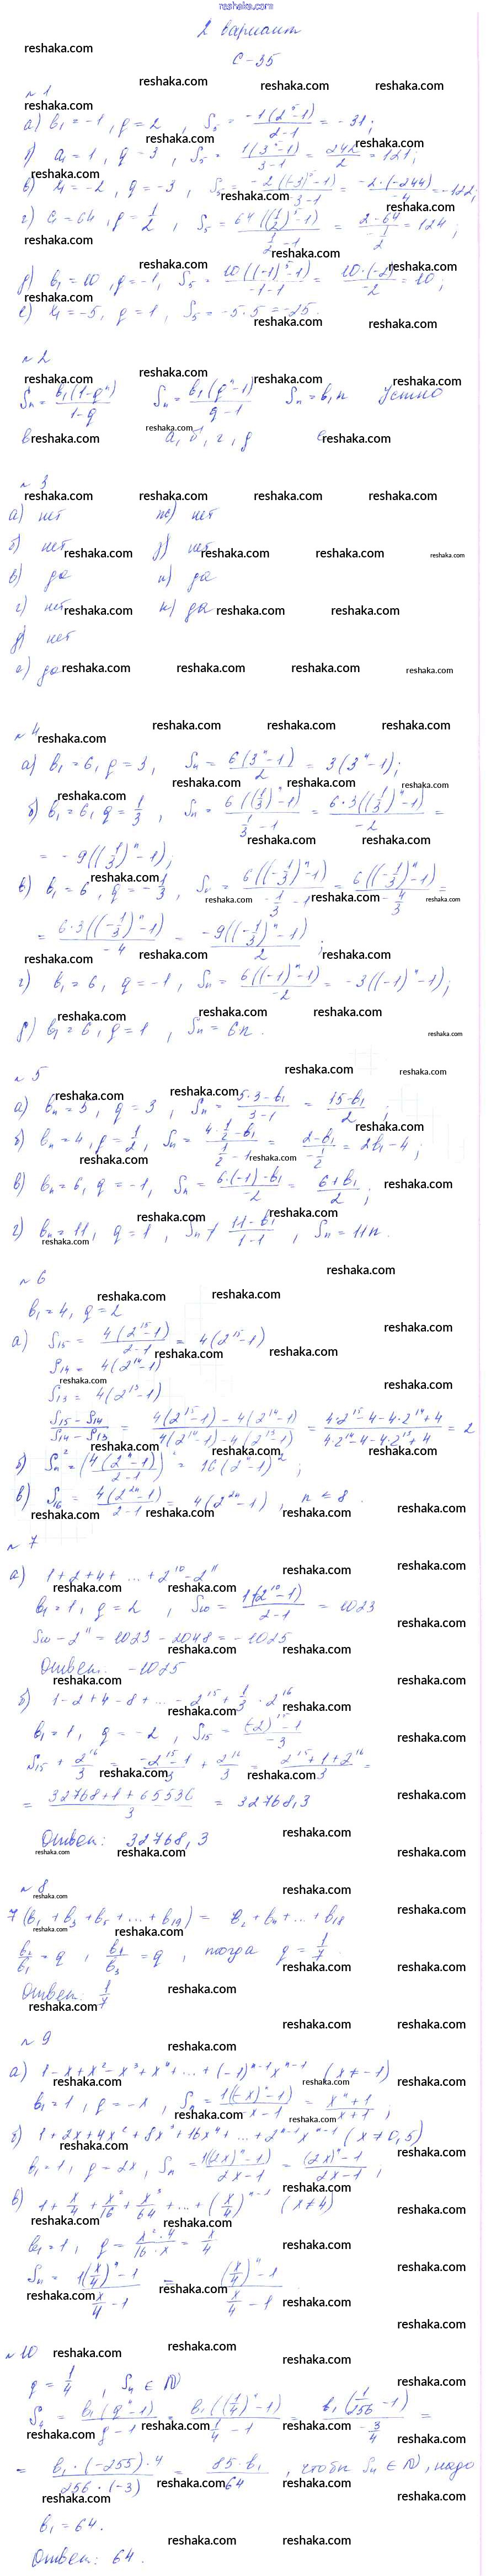 reshaka.com
2 вариант
С-35
№1
а) b₁ = -1, q = 2, S₅ = -1(2⁵-1)/(2-1) = -31;
б) a₁ = 1, q = 3, S₅ = 1(3⁵-1)/(3-1) = 242/2 = 121;
= -2·(-244)/-4 = -122;
S₅ = 64((1/2)⁵-1)/(1/2-1) = = 124;
д) b₁ = 10, q = -1, S₅ = 10((-1)⁵-1)/(-1-1) = 10·(-2)/-2 = 10;
q = 1, S₅ = -5·5 = -25.
№2
Sₙ = b₁(1-qⁿ)/(1-q) Sₙ = b₁(qⁿ-1)/(q-1) Sₙ = b₁n Устно
в а, б, г, д е
№3
а) нет ж) нет
б) нет з) нет
в) да и) да
г) нет к) да
д) нет
е) да
№4
а) b₁ = 6, q = 3, Sₙ = 6(3ⁿ-1)/2 = 3(3ⁿ-1);
б) b₁ = 6, q = 1/3, Sₙ = 6((1/3)ⁿ-1)/(1/3-1) = 6·3((1/3)ⁿ-1)/-2 =
= -9((1/3)ⁿ-1);
в) b₁ = 6, q = -1/3, Sₙ = 6((-1/3)ⁿ-1)/(-1/3-1) = 6((-1/3)ⁿ-1)/(-4/3) =
= 6·3((-1/3)ⁿ-1)/-4 = -9((-1/3)ⁿ-1)/2;
г) b₁ = 6, q = -1, Sₙ = 6((-1)ⁿ-1)/-2 = -3((-1)ⁿ-1);
д) b₁ = 6, q = 1, Sₙ = 6n.
№5
а) bₙ = 5, q = 3, Sₙ = (5·3-b₁)/(3-1) = (15-b₁)/2;
б) bₙ = 4, q = 1/2, Sₙ = (4·1/2-b₁)/(1/2-1) = (2-b₁)/(-1/2) = 2b₁-4;
в) bₙ = 6, q = -1, Sₙ = (6·(-1)-b₁)/-2 = (6+b₁)/2;
г) bₙ = 11, q = 1, Sₙ ≠ (11-b₁)/(1-1), Sₙ = 11n.
№6
b₁ = 4, q = 2
а) S₁₅ = 4(2¹⁵-1)/(2-1) = 4(2¹⁵-1)
S₁₄ = 4(2¹⁴-1)
S₁₃ = 4(2¹³-1)
(S₁₅-S₁₄)/(S₁₄-S₁₃) = (4(2¹⁵-1)-4(2¹⁴-1))/(4(2¹⁴-1)-4(2¹³-1)) = (4·2¹⁵-4-4·2¹⁴+4)/(4·2¹⁴-4-4·2¹³+4) = 2
б) Sₙ² = (4(2ⁿ-1)/(2-1))² = 16(2ⁿ-1)²;
в) S₁₆ = 4(2²ⁿ-1)/(2-1) = 4(2²ⁿ-1), n ≤ 8.
№7
а) 1+2+4+ ... +2¹⁰-2¹¹
b₁ = 1, q = 2, S₁₀ = 1(2¹⁰-1)/(2-1) = 1023
S₁₀-2¹¹ = 1023-2048 = -1025
Ответ: -1025
б) 1-2+4-8+ ... -2¹⁵+1/3·2¹⁶
b₁ = 1, q = -2, S₁₅ = ((-2)¹⁵-1)/-3
S₁₅+2¹⁶/3 = (-2¹⁵-1)/-3+2¹⁶/3 = (2¹⁵+1+2¹⁶)/3 =
= (32768+1+65536)/3 = 32768,3
Ответ: 32768,3
№8
7(b₁+b₃+b₅+...+b₁₉) = b₂+b₄+...+b₁₈
b₂/b₁ = q, b₄/b₃ = q, тогда q = 1/7.
Ответ: 1/7
№9
а) 1-x+x²-x³+x⁴+...+(-1)ⁿ⁻¹xⁿ⁻¹ (x≠-1)
b₁ = 1, q = -x, Sₙ = 1((-x)ⁿ-1)/(-x-1) = (xⁿ+1)/(x+1);
б) 1+2x+4x²+8x³+16x⁴+...+2ⁿ⁻¹xⁿ⁻¹ (x≠0,5)
b₁ = 1, q = 2x, Sₙ = 1((2x)ⁿ-1)/(2x-1) = ((2x)ⁿ-1)/(2x-1);
в) 1+x/4+x²/16+x³/64+...+(x/4)ⁿ⁻¹ (x≠4)
b₁ = 1, q = x²·4/16·x = x/4
Sₙ = 1((x/4)ⁿ-1)/(x/4-1) = ((x/4)ⁿ-1)/(x/4-1).
№10
q = 1/4, S₄ ∈ N
S₄ = b₁(q⁴-1)/(q-1) = b₁((1/4)⁴-1)/(1/4-1) = b₁(1/256-1)/(-3/4) =
= b₁·(-255)·4/256·(-3) = 85·b₁/64, чтобы S₄ ∈ N, надо
b₁ = 64.
Ответ: 64.